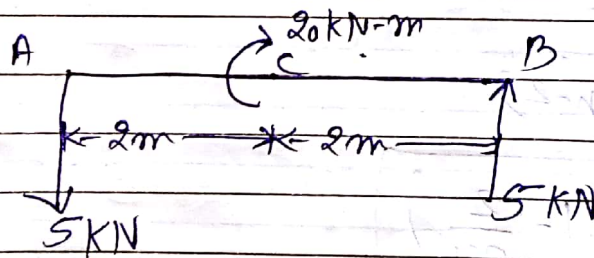 20KN-m
A C B
2m 2m
5KN 5KN